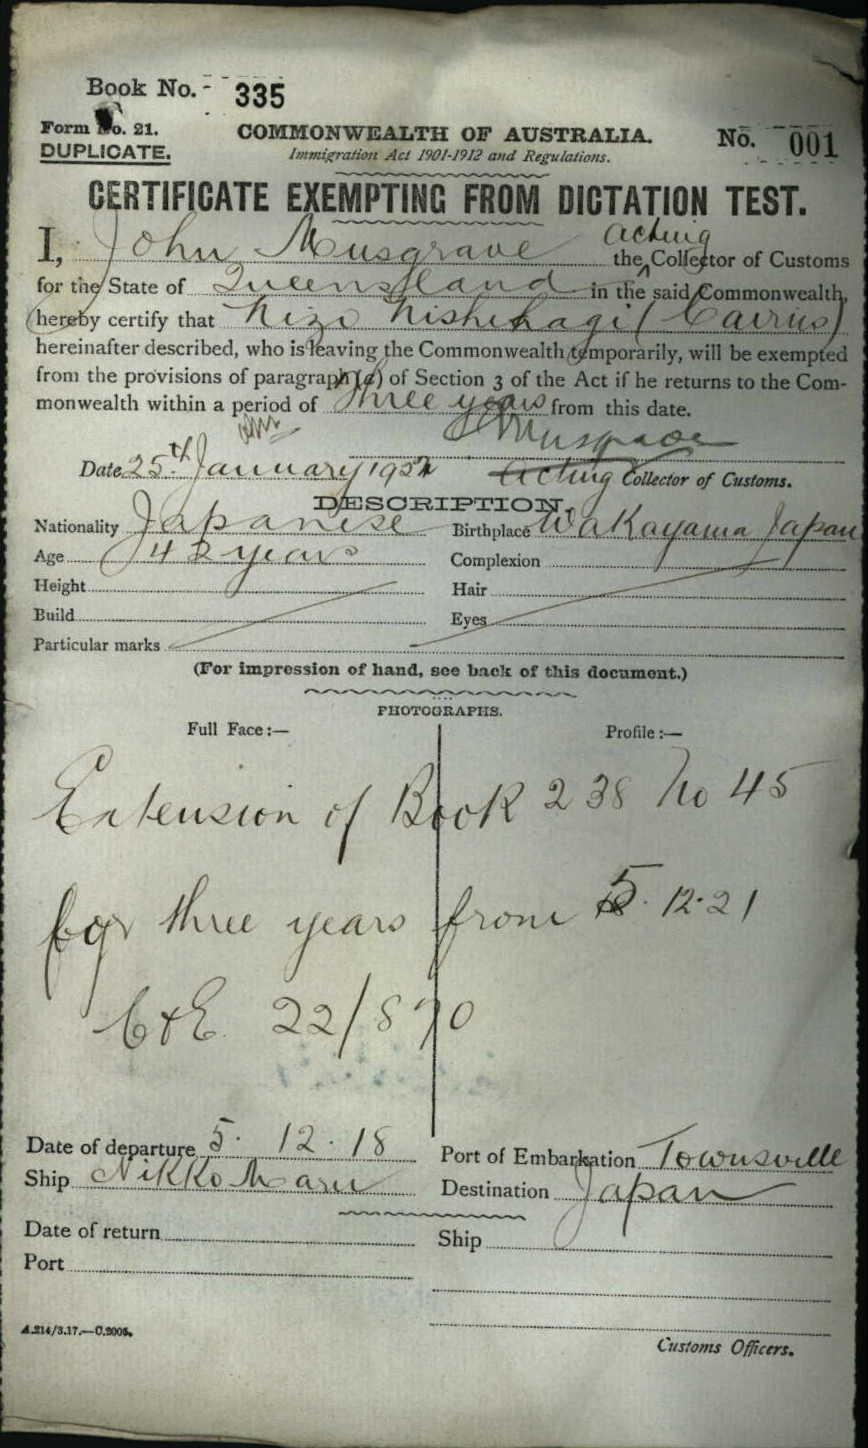 Book No. - 335
Form No. 21.
DUPLICATE.
COMMONWEALTH OF AUSTRALIA.
No. 001
Immigration Act 1901-1912 and Regulations.
CERTIFICATE EXEMPTING FROM DICTATION TEST.
I, John Musgrave the acting Collector of Customs
for the State of Queensland in the said Commonwealth,
hereby certify that Kizi Nishihagi (Cairns)
hereinafter described, who is leaving the Commonwealth temporarily, will be exempted
from the provisions of paragraph (a) of Section 3 of the Act if he returns to the Com-
monwealth within a period of three years from this date.
J Musgrave
Date 25th January 1922 Acting Collector of Customs.
DESCRIPTION.
Nationality Japanese Birthplace Wakayama Japan
Age 42 years Complexion
Height Hair
Build Eyes
Particular marks
(For impression of hand, see back of this document.)
PHOTOGRAPHS.
Full Face :— Profile :—
Extension of Book 238 No 45
for three years from 5.12.21
C&E 22/870
Date of departure 5. 12. 18 Port of Embarkation Townsville
Ship Nikko Maru Destination Japan
Date of return Ship
Port
A.214/3.17.—C.2005.
Customs Officers.